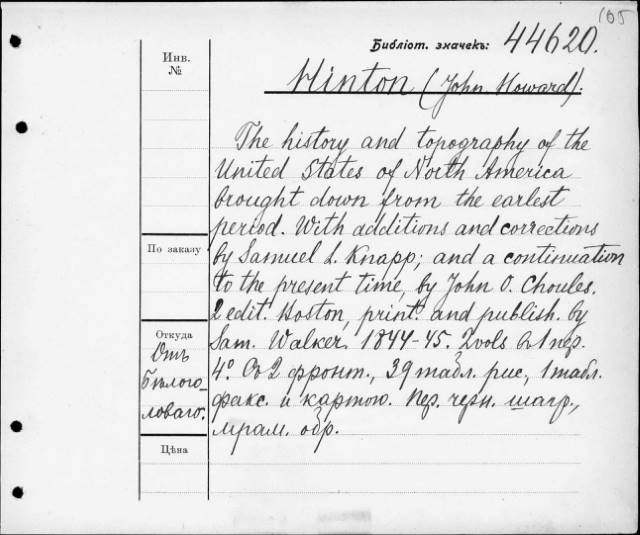 105
Библіот. значекъ: 44620.
Инв.
№
Hinton (John Howard).
The history and topography of the
United States of North America
brought down from the earlest
period. With additions and corrections
по заказу
by Samuel L. Knapp; and a continuation
to the present time, by John O. Choules.
2 edit. Boston, print. and publish. by
Откуда
Отъ
Бѣлого-
ловаго.
Sam. Walker. 1844-45. 2 vols въ 1 пер.
4º. Съ 2 фронт., 39 табл. рис., 1 табл.
факс. и картою. Пер. черн. шагр.,
мрам. обр.
Цѣна